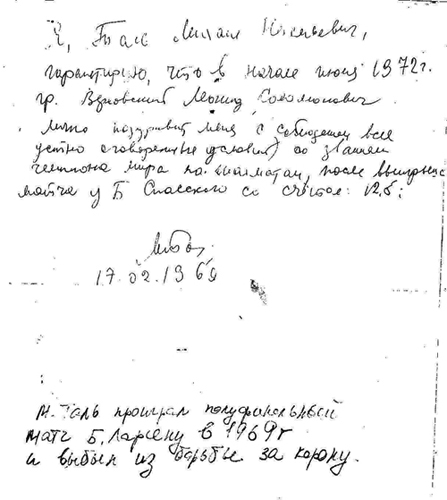 Я, Таль Михаил Нехемьевич,
гарантирую, что в начале июня 1972г.
гр. Верховский Леонид Соломонович
лично поздравит меня с соблюдением всех
устно оговоренных условий) со званием
чемпиона мира по шахматам, после выигрыша
матча у Б Спасского со счётом: 12,5:
17.02.1969
М. Таль проиграл полуфинальный
матч Б. Ларсену в 1969г
и выбыл из борьбы за корону.